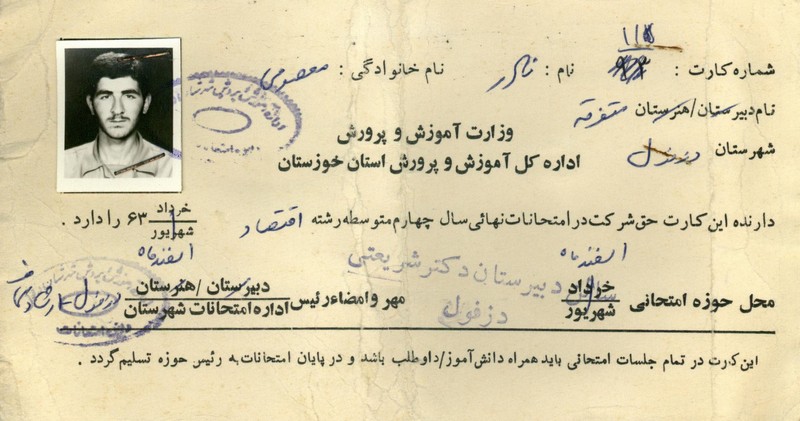 ۱۱۵
شماره کارت : نام : نادر نام خانوادگی : معصومی
نام دبیرستان/هنرستان متفرقه
وزارت آموزش و پرورش
شهرستان دزفول
اداره کل آموزش و پرورش استان خوزستان
دارنده این کارت حق شرکت در امتحانات نهائی سال چهارم متوسطه رشته اقتصاد خرداد شهریور ۶۳ را دارد .
اسفند ماه اسفند ماه
محل حوزه امتحانی خرداد شهریور سالن دبیرستان دکتر شریعتی دزفول مهر و امضاء رئیس دبیرستان/هنرستان اداره امتحانات شهرستان دزفول
این کارت در تمام جلسات امتحانی باید همراه دانش‌آموز/داوطلب باشد و در پایان امتحانات به رئیس حوزه تسلیم گردد .